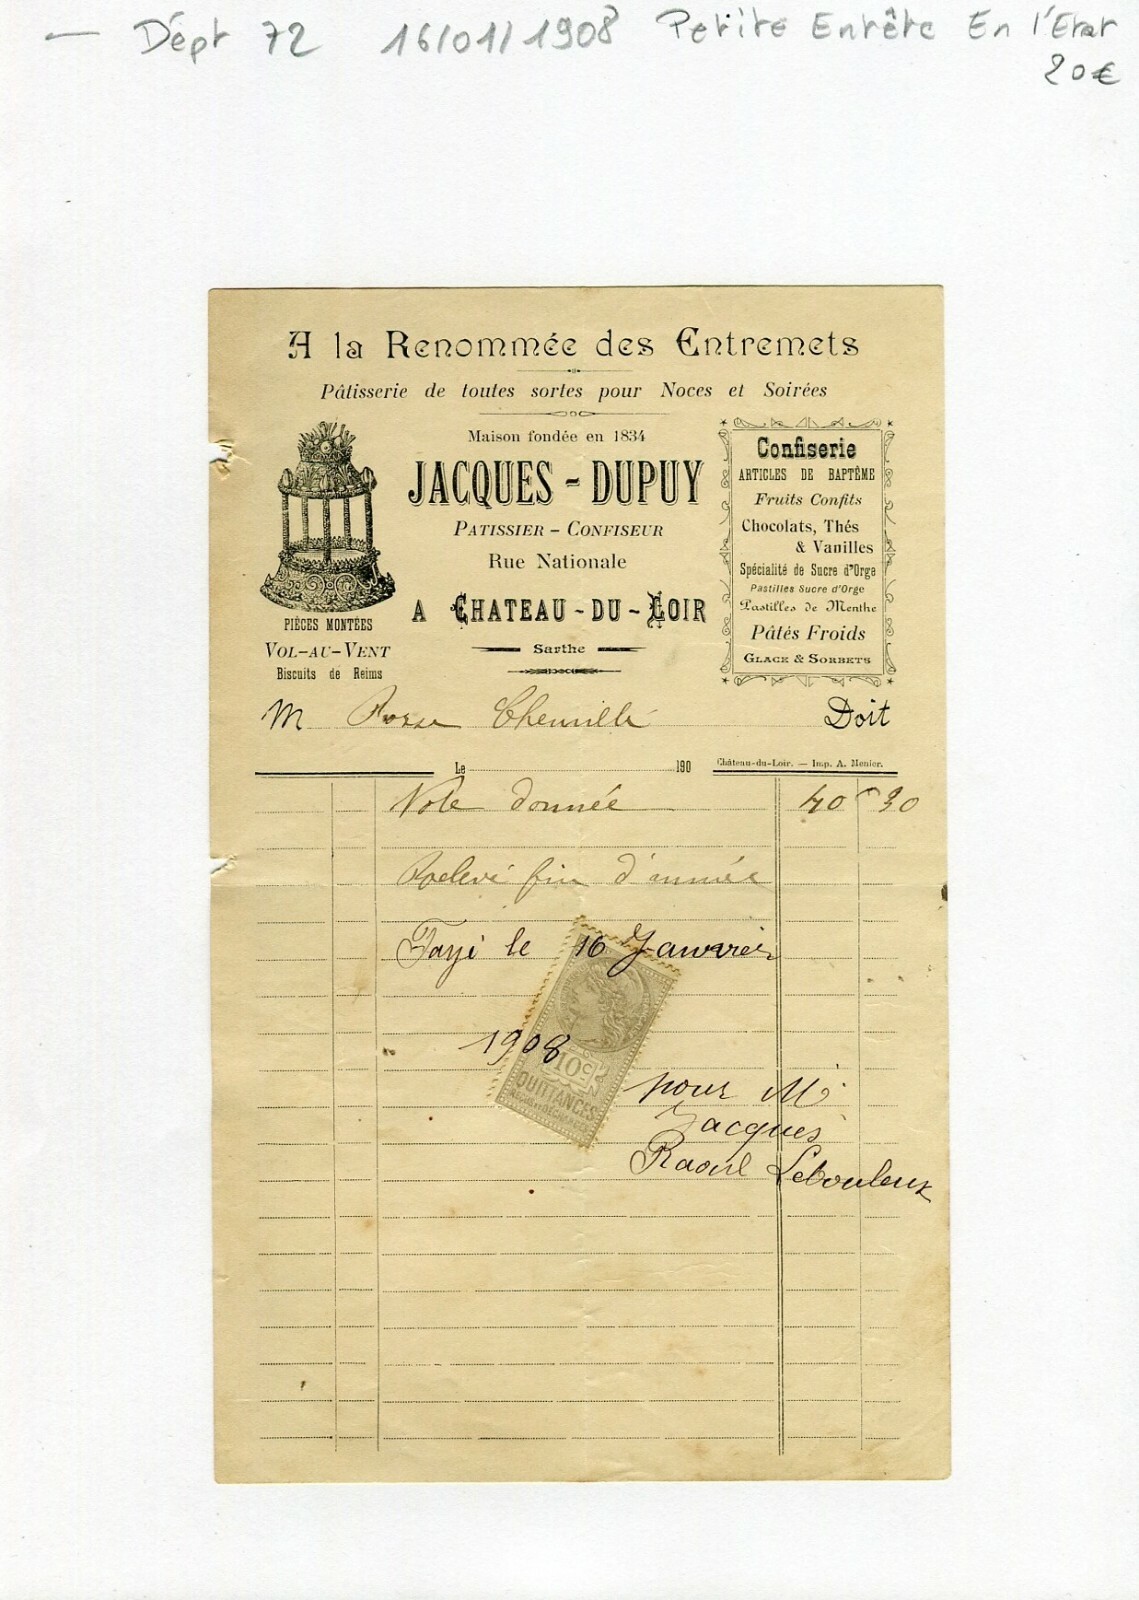 — Dépt 72 16/01/1908 Petite Entête En l'Etat
20€
A la Renommée des Entremets
Pâtisserie de toutes sortes pour Noces et Soirées
Maison fondée en 1834
JACQUES - DUPUY
PATISSIER - CONFISEUR
Rue Nationale
A CHATEAU - DU - LOIR
Sarthe
PIÈCES MONTÉES
VOL-AU-VENT
Biscuits de Reims
Confiserie
ARTICLES DE BAPTÊME
Fruits Confits
Chocolats, Thés
& Vanilles
Spécialité de Sucre d'Orge
Pastilles Sucre d'Orge
Pastilles de Menthe
Pâtés Froids
GLACE & SORBETS
M Doit
Le 190
Château-du-Loir. — Imp. A. Menier.
Note donnée 40 f 30
Relevé fin d'année
Payé le 16 Janvier
1908
10 c
QUITTANCES
pour Mr
Jacques
Raoul Lebouleux